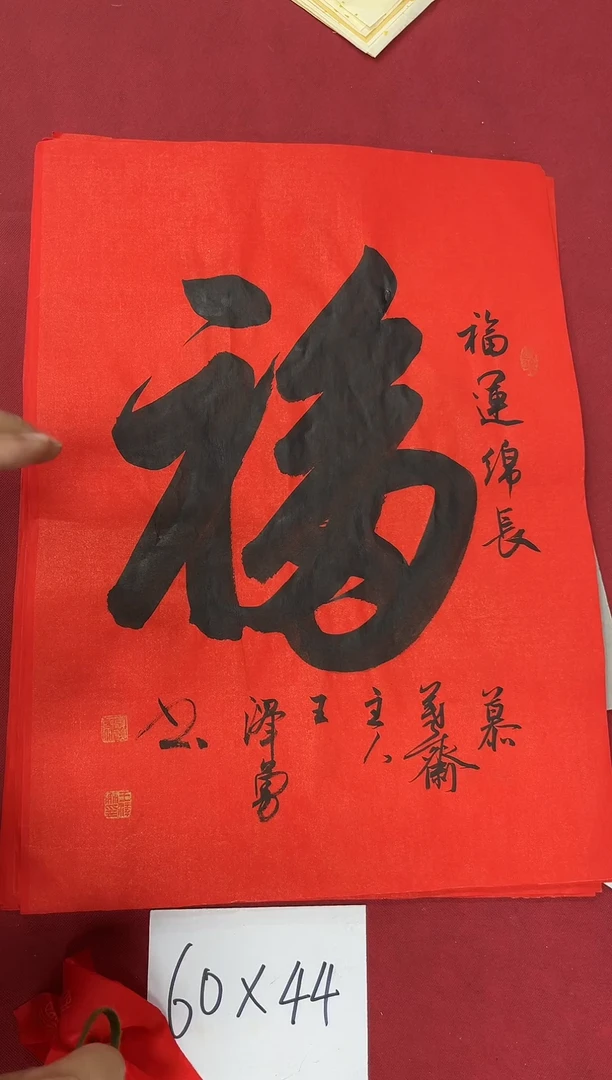 福
福運綿長
慕
義齋
主人
王
澤勇
书
60×44